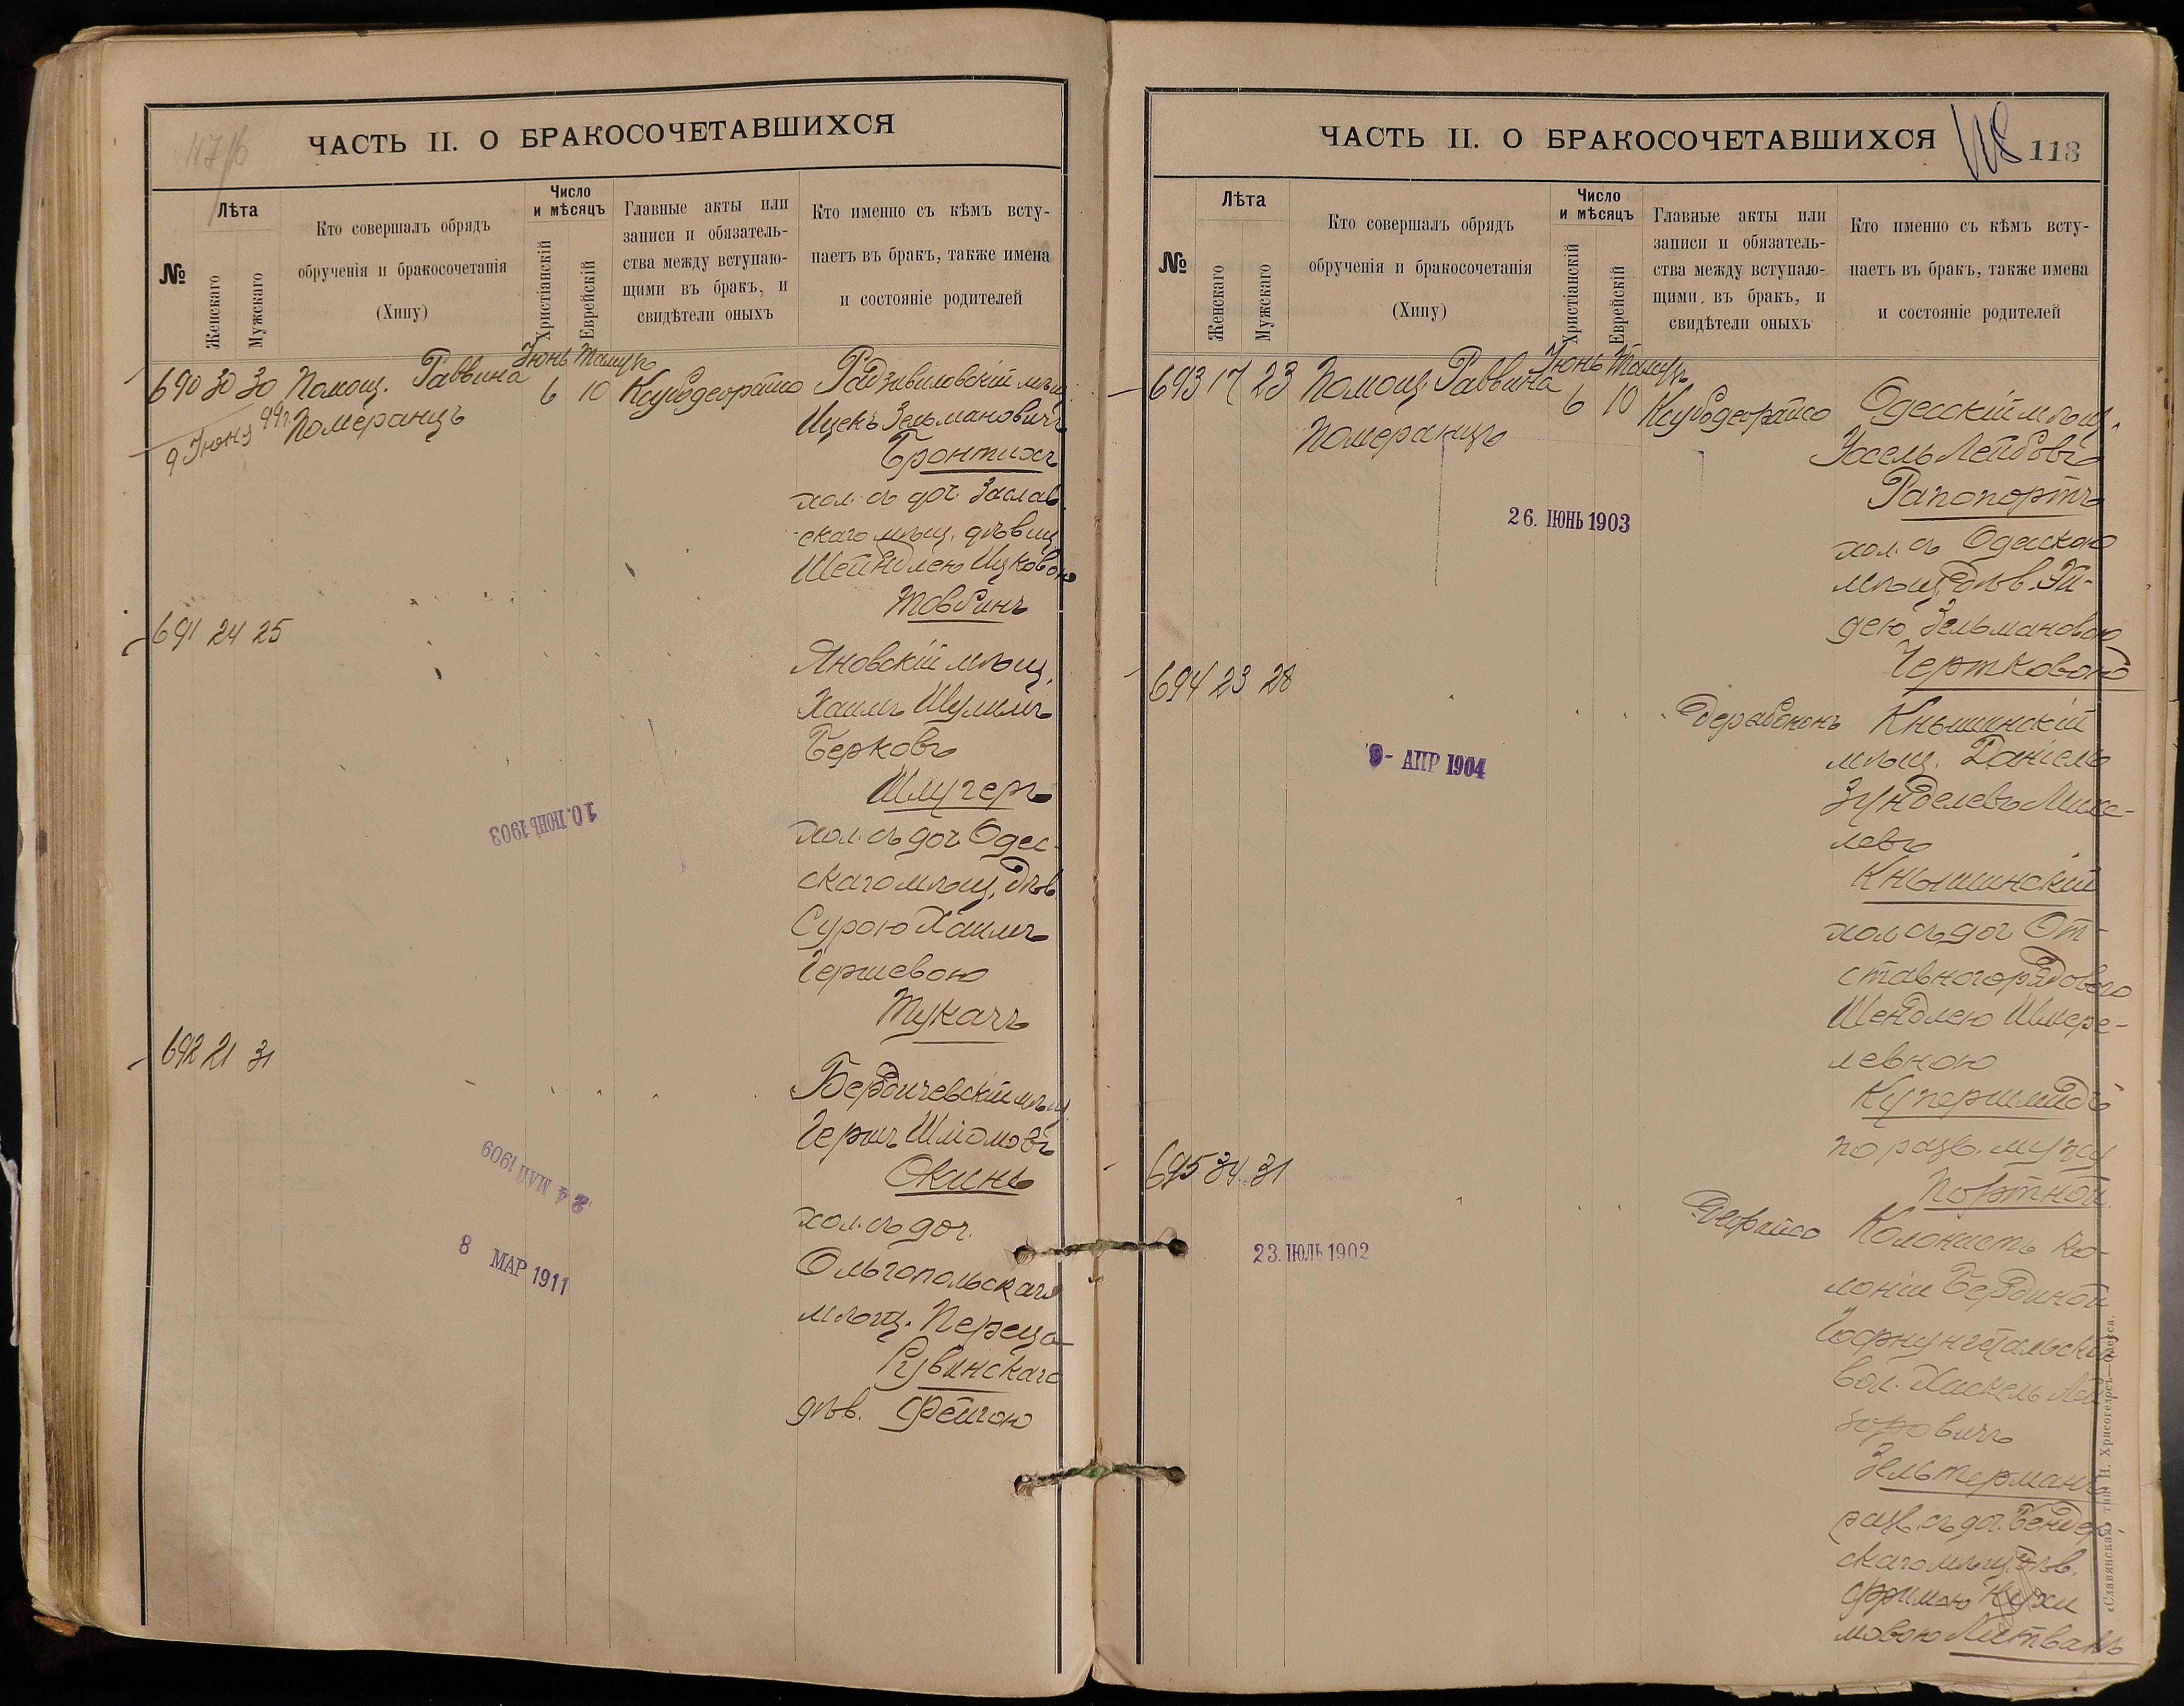 47/б
ЧАСТЬ II. О БРАКОСОЧЕТАВШИХСЯ
№
Лѣта
Женскаго
Мужскаго
Кто совершалъ обрядъ
обрученія и бракосочетанія
(Хипу)
Число
и мѣсяцъ
Христіанскій
Еврейскій
Главные акты или
записи и обязатель-
ства между вступаю-
щими въ бракъ, и
свидѣтели оныхъ
Кто именно съ кѣмъ всту-
паетъ въ бракъ, также имена
и состояніе родителей
690 30 30 Помощ. Раввина
Померанцъ
9 Іюня 99г.
Іюнь Тамузъ
6 10
Радзивиловскій мѣщ.
Ицекъ Зельмановичъ
Бронтихъ
хол. съ доч. Заслав
скаго мѣщ. дѣвиц
Шейндлею Ицковою
Товбинъ
691 24 25
Яновскій мѣщ.
Хаимъ Шулимъ
Берковъ
Шлугеръ
хол. съ доч. Одес-
скаго мѣщ. дѣв.
Сурою Хаимъ
Гершевою
Тукачъ
10. ІЮНЬ 1903
692 21 31
Бердичевскій мѣщ
Гершъ Шліомовъ
Окинь
хол. съ доч.
Ольгопольскаго
мѣщ. Переца
Рувинскаго
дѣв. Фейгою
24 МАЙ 1909
8 МАР 1911
ЧАСТЬ II. О БРАКОСОЧЕТАВШИХСЯ
118
118
№
Лѣта
Женскаго
Мужскаго
Кто совершалъ обрядъ
обрученія и бракосочетанія
(Хипу)
Число
и мѣсяцъ
Христіанскій
Еврейскій
Главные акты или
записи и обязатель-
ства между вступаю-
щими въ бракъ, и
свидѣтели оныхъ
Кто именно съ кѣмъ всту-
паетъ въ бракъ, также имена
и состояніе родителей
693 17 23 Помощ. Раввина
Померанцъ
Іюнь Тамузъ
6 10
Одесскій мѣщ.
Усхель Лейбовъ
Рапопортъ
хол. съ Одесскою
мѣщ. дѣв. Эй-
дею Зельмановою
Чертковою
26. ІЮНЬ 1903
694 23 28
Кнышинскій
мѣщ. Даніель
Зунделевъ Михе-
левъ
Кнышинскій
хол съ доч От-
ставного рядового
Шендлею Шмере-
левною
Купершмидъ
по разв. мужу
Портной
9- АПР 1904
695 34 31
Колонистъ ко-
лоніи
вол. Хаскель Лей
зоровичъ
Зельтерманъ
разв. съ доч. Бендер-
скаго мѣщ. дѣв.
Фримою Нухи
мовою Литвакъ
23. ІЮЛЬ 1902
«Славянская» тип. Н. Хрисогелосъ—Одесса.